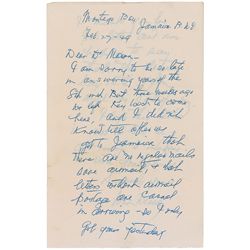 Montego Bay Jamaica B.W.I.
Feb 27-49
Dear Dr
I am sorry to be so late
in answering yours of the
8th inst. But three weeks ago
we left Key West to come
here, and I didn't
know till after we
got to Jamaica that
there are no mails
save airmail, & that
letters without airmail
postage are
in so I only
got yours yesterday